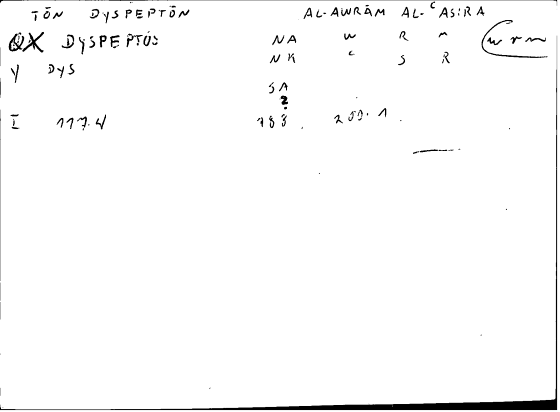 TŌN DYSPEPTŌN AL-AWRĀM AL-ʿASIRA
QX DYSPEPTOS NA W R M wrm
Y DYS NK ʿ S R
SA
?
I 117.4 783. 259.1.